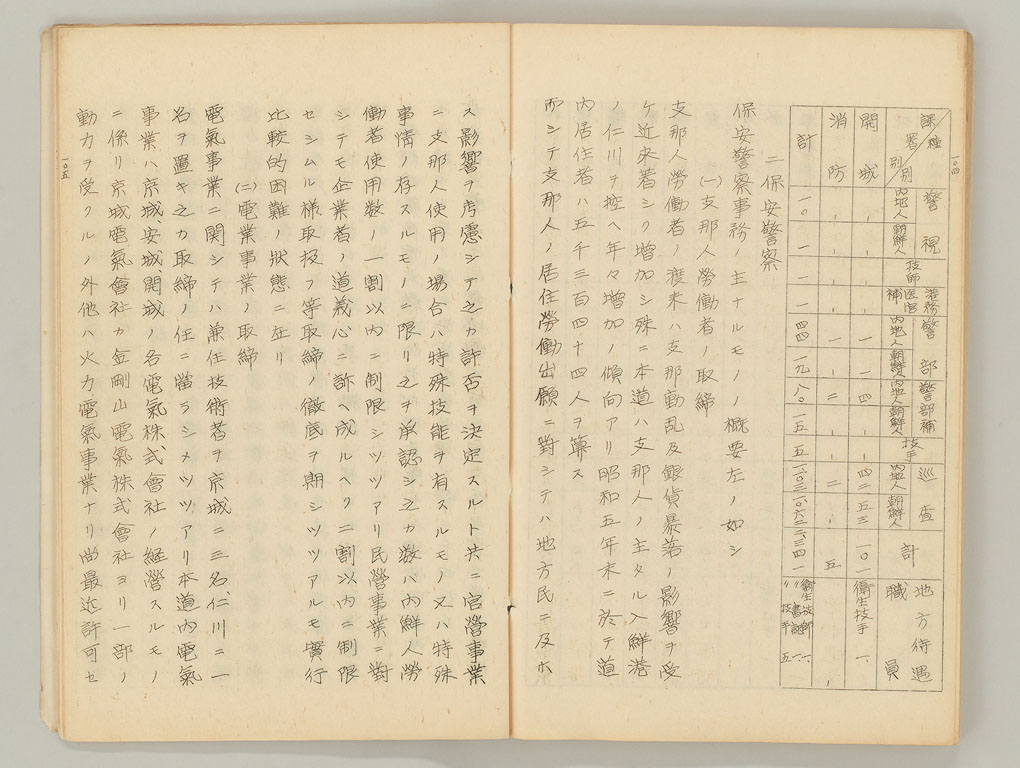 一〇四
課署別／種別
警視
内地人
朝鮮人
技師
港務医官補
警部
内地人
朝鮮人
警部補
内地人
朝鮮人
技手
巡査
内地人
朝鮮人
計
地方待遇職員
開城
一
四
四二
五三
一〇一
衛生技手 一
消防
一
二
二
五
計
一〇
一
一
一
四四
一九
八〇
一五
五
衛生技師
二 保安警察
保安警察事務ノ主ナルモノノ概要左ノ如シ
(一) 支那人勞働者ノ取締
支那人勞働者ノ渡來ハ支那動乱及銀貨暴落ノ影響ヲ受
ケ近來著シク增加シ殊ニ本道ハ支那人ノ主タル入鮮港
ノ仁川ヲ控ヘ年々增加ノ傾向アリ昭和五年末ニ於テ道
内居住者ハ五千三百四十四人ヲ算ス
而シテ支那人ノ居住勞働出願ニ對シテハ地方民ニ及ホ
ス影響ヲ考慮シテ之カ許否ヲ決定スルト共ニ官營事業
ニ支那人使用ノ場合ハ特殊技能ヲ有スルモノ又ハ特殊
事情ノ存スルモノニ限リ之ヲ承認シ之カ数ハ内鮮人勞
働者使用数ノ一割以内ニ制限シツツアリ民營事業ニ對
シテモ企業者ノ道義心ニ訴ヘ成ルヘク二割以内ニ制限
セシムル様取扱フ等取締ノ徹底ヲ期シツツアルモ實行
比較的困難ノ狀態ニ在リ
(二) 電業事業ノ取締
電氣事業ニ関シテハ兼任技術者ヲ京城ニ三名、仁川ニ一
名ヲ置キ之カ取締ノ任ニ當ラシメツツアリ本道内電氣
事業ハ京城、安城、開城ノ各電氣株式會社ノ経營スルモノ
ニ係リ京城電氣會社カ金剛山電氣株式會社ヨリ一部ノ
動力ヲ受クルノ外他ハ火力電氣事業ナリ尚最近許可セ
一〇五